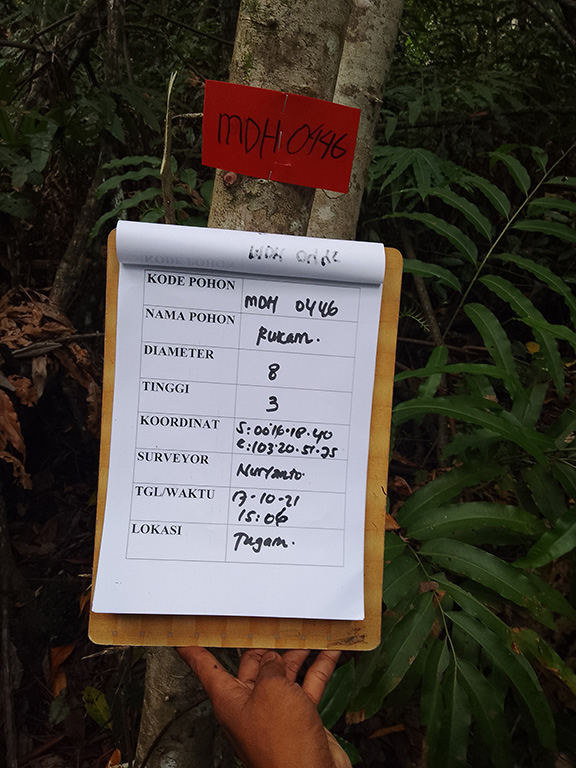 MDH 0446
KODE POHON
MDH 0446
NAMA POHON
Rukam.
DIAMETER
8
TINGGI
3
KOORDINAT
S:00.16.18.40
E:103.20.51.75
SURVEYOR
Nuryanto.
TGL/WAKTU
17-10-21
15:06
LOKASI